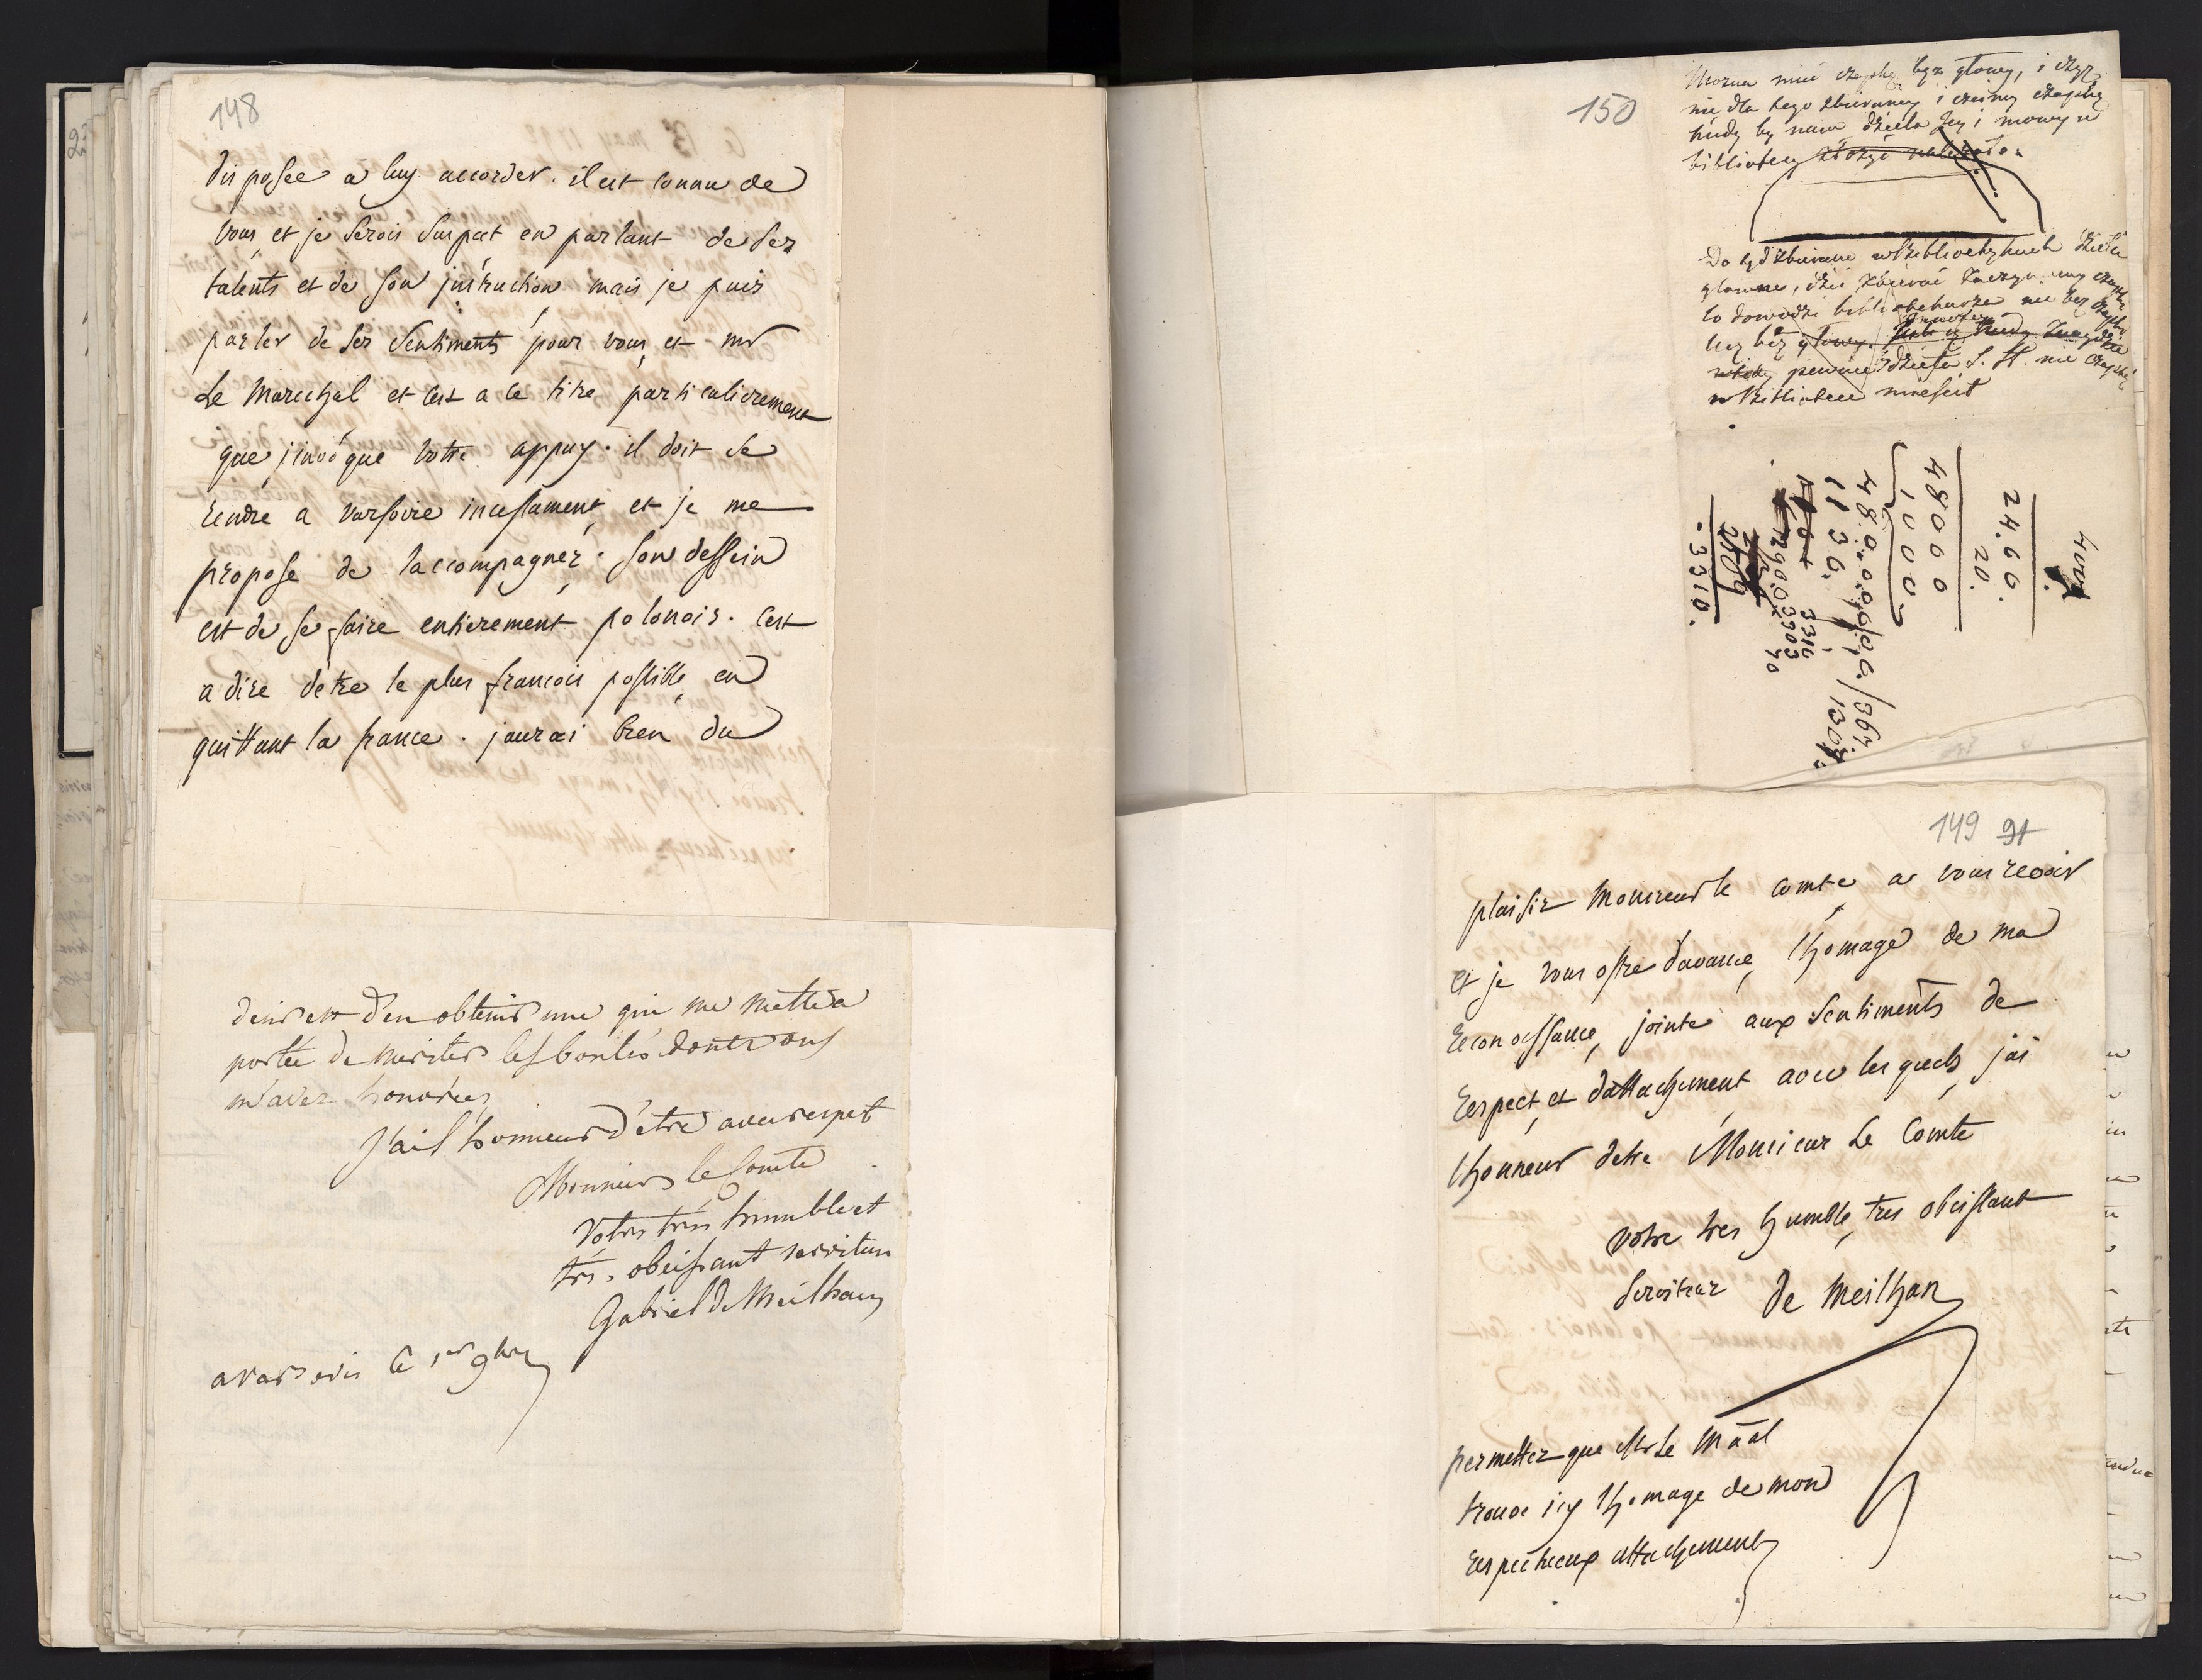 148
disposee a luy accorder. il est connu de
vous et je serois suspect en parlant de ses
talents et de son jnstruction mais je puis
parler de ses sentiments pour vous et mr
Le Marechal et cest a ce titre particulierement
que jinvoque votre appuy. il doit se
rendre a varsovie incessament et je me
propose de laccompagner. son dessein
est de se faire entierement polonois. cest
a dire detre le plus francois possible en
quittant la france. jaurai bien du
desir est d'en obtenir une qui me mette a
portée de meriter les bontés dont vous
m'avez honorées
J'ai l'honneur d'être avec respect
Monsieur le Comte
Votre trés humble et
trés. obeissant serviteur
Gabriel de Meilhan
a varsovie le 1er 9bre
150
bez głowy, i
nie dla tego zbieramy i cenimy czapkę
kiedy by nam dzieła jej i mowy w
bibliotece złożyć należało.
Do tąd zbierano w Bibliotekach dzieła
główne, dziś zbierać zaczynamy czapki
to dowodzi
lecz bez głowy.
pewnie dzieła S. H. nie czapkę
w Bibliotece mieścił
24.60.
20.
48000
1000
1130.
3316
3903
2900
.3310.
149 91
plaisir Monsieur le comte a vous revoir
et je vous offre davance lhomage de ma
reconoissance jointe aux sentiments de
respect et dattachement avec les quels jai
lhonneur detre Monsieur Le Comte
votre tres humble, tres obeissant
serviteur de Meilhan
permettez que Mr Le Māal
trouve icy lhomage de mon
respectueux attachement